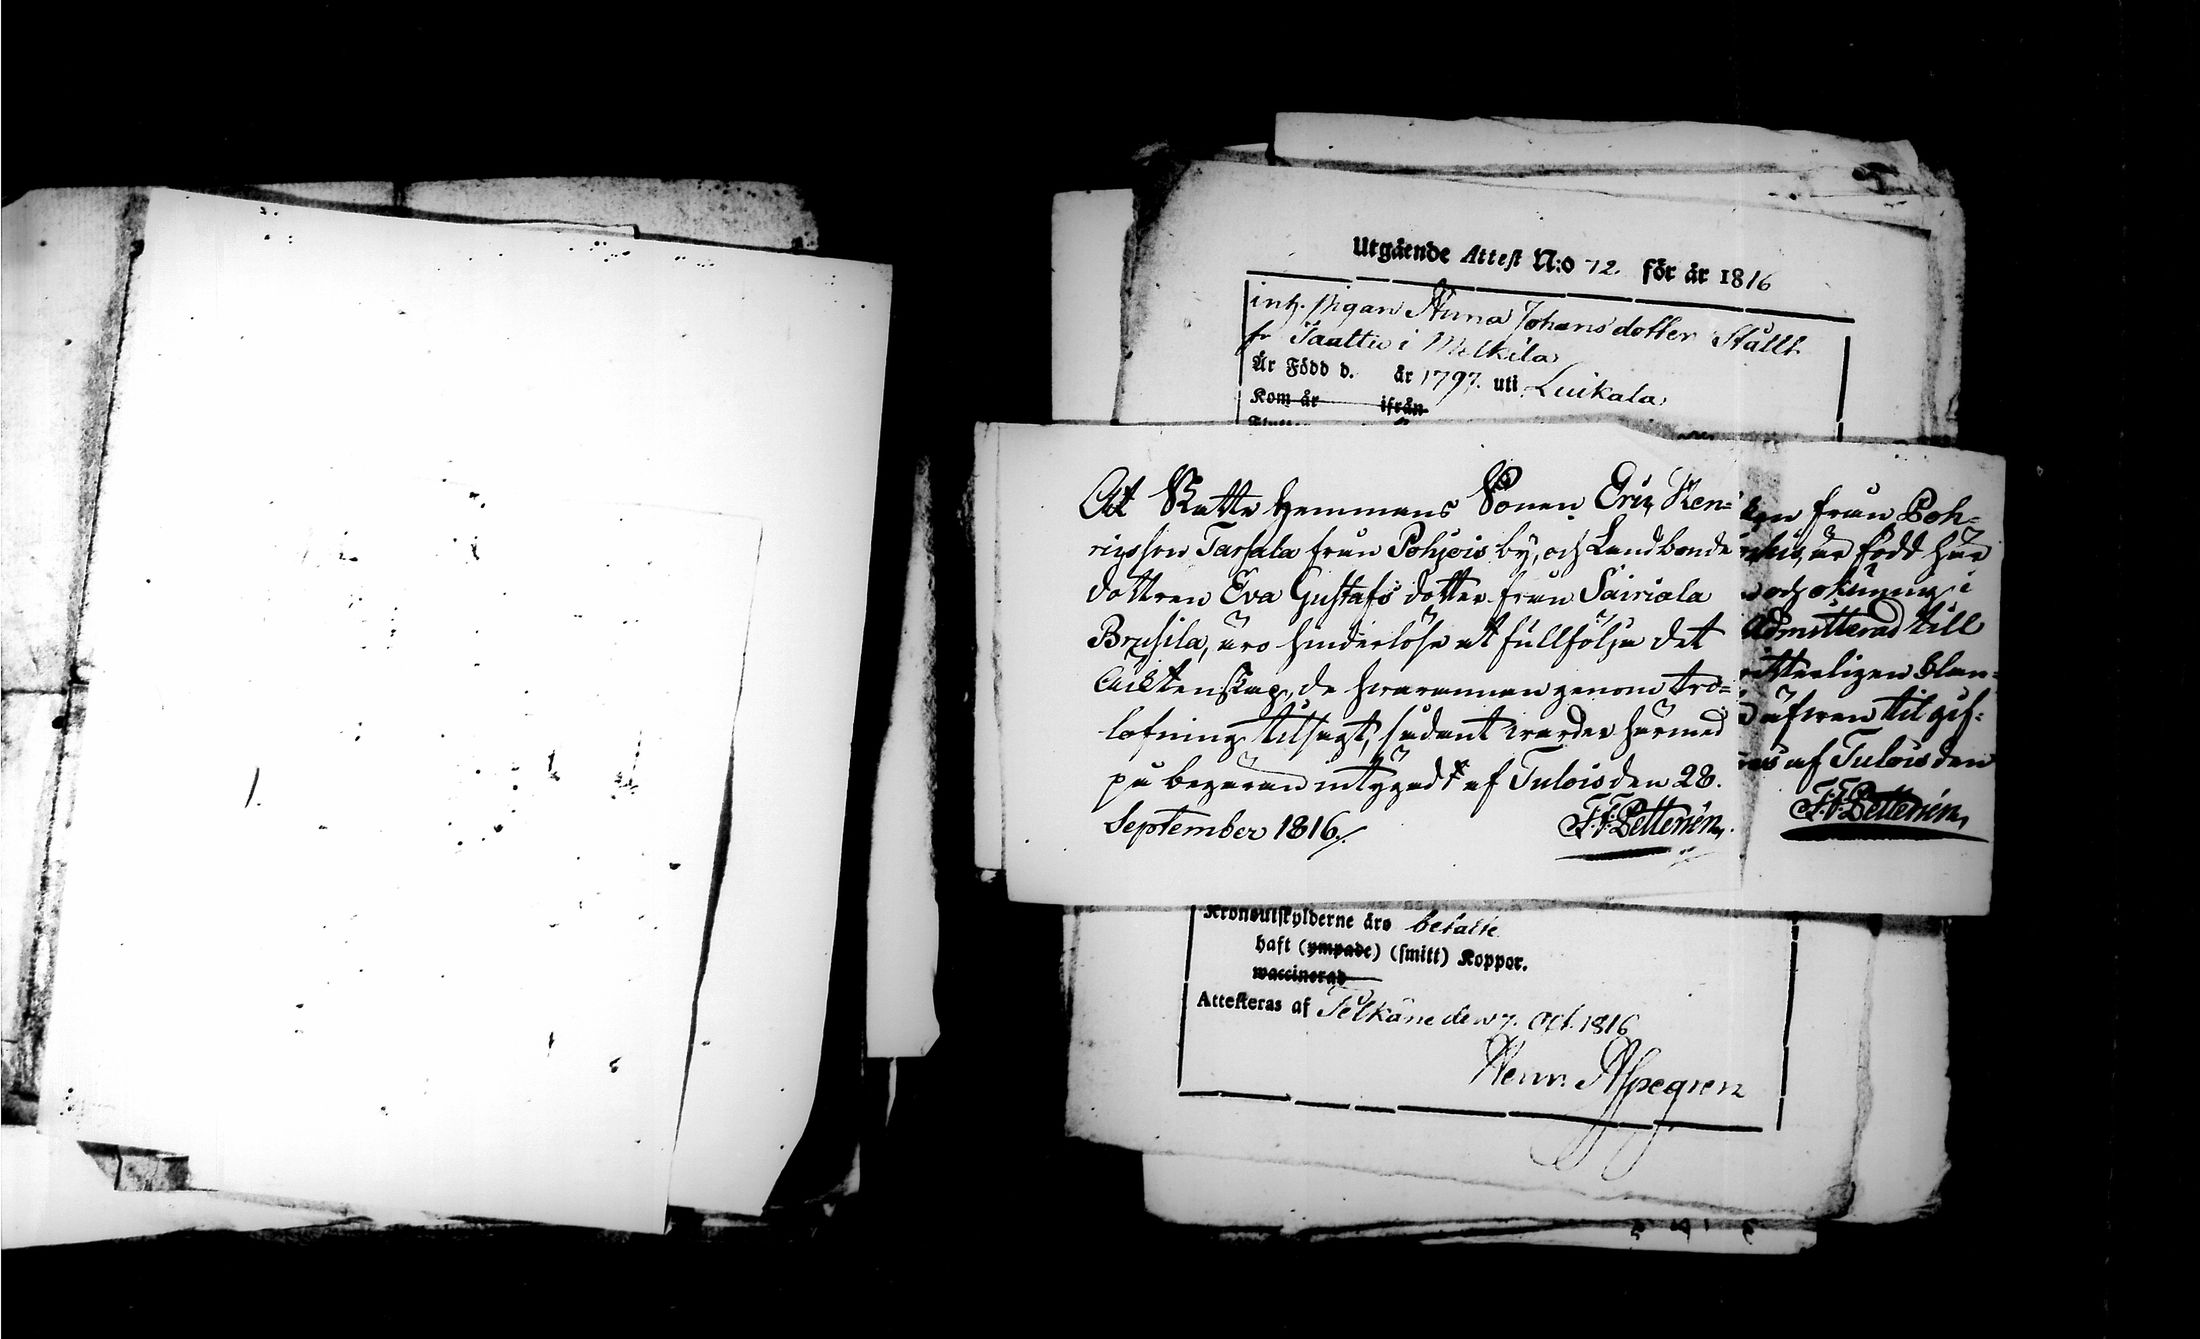 Utgående Attest N:o 72. för år 1816
inh. Pigan Anna Johansdotter Stållt
fr Taattu i Melkila
Är Född d. år 1797. uti Luikala
Kom år ifrån
At Ratte Hemmans Sonen Eric Hen=
ricsson Tarsala från Pohjois by, och Landbonde
dottren Eva Gustafs dotter från Sairiala
Brusila, äro hinderlöse at fullfölja det
Äcktenskap, de hvarannan genom tro=
lofning tilsagt, sådant warder härmed
på begäran intygadt af Tulois den 28.
September 1816./. F:F:Pettersén
från Poh=
är född här
och okunnig i
Admitterad till
blan=
äfwen til gif=
af Tulois den
F:F:Pettersén
Kronoutskylderne äro betalte
haft (ympade) (smitt) Koppor.
waccinerad
Attesteras af Pelkäne den 7. Oct. 1816
Henr. Aspegren